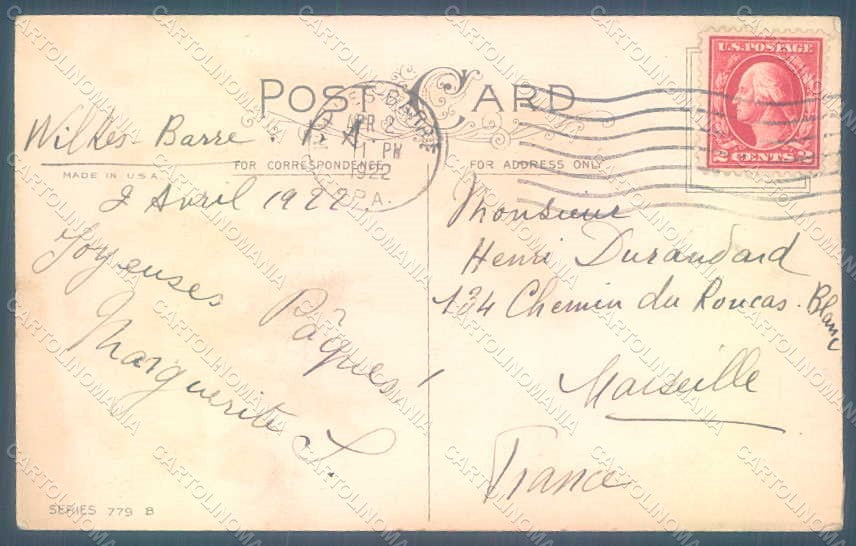 POST CARD
U.S. POSTAGE
2 CENTS 2
WILKES-BARRE
APR 2
1 PM
1922
PA.
Wilkes-Barre. P.A.
2 Avril 1922.
Joyeuses
Pâques!
Marguerite L.
FOR CORRESPONDENCE
MADE IN U.S.A.
FOR ADDRESS ONLY
Monsieur
Henri Durandard
134 Chemin du Roucas-Blanc
Marseille
France
SERIES 779 B
CARTOLINOMANIA